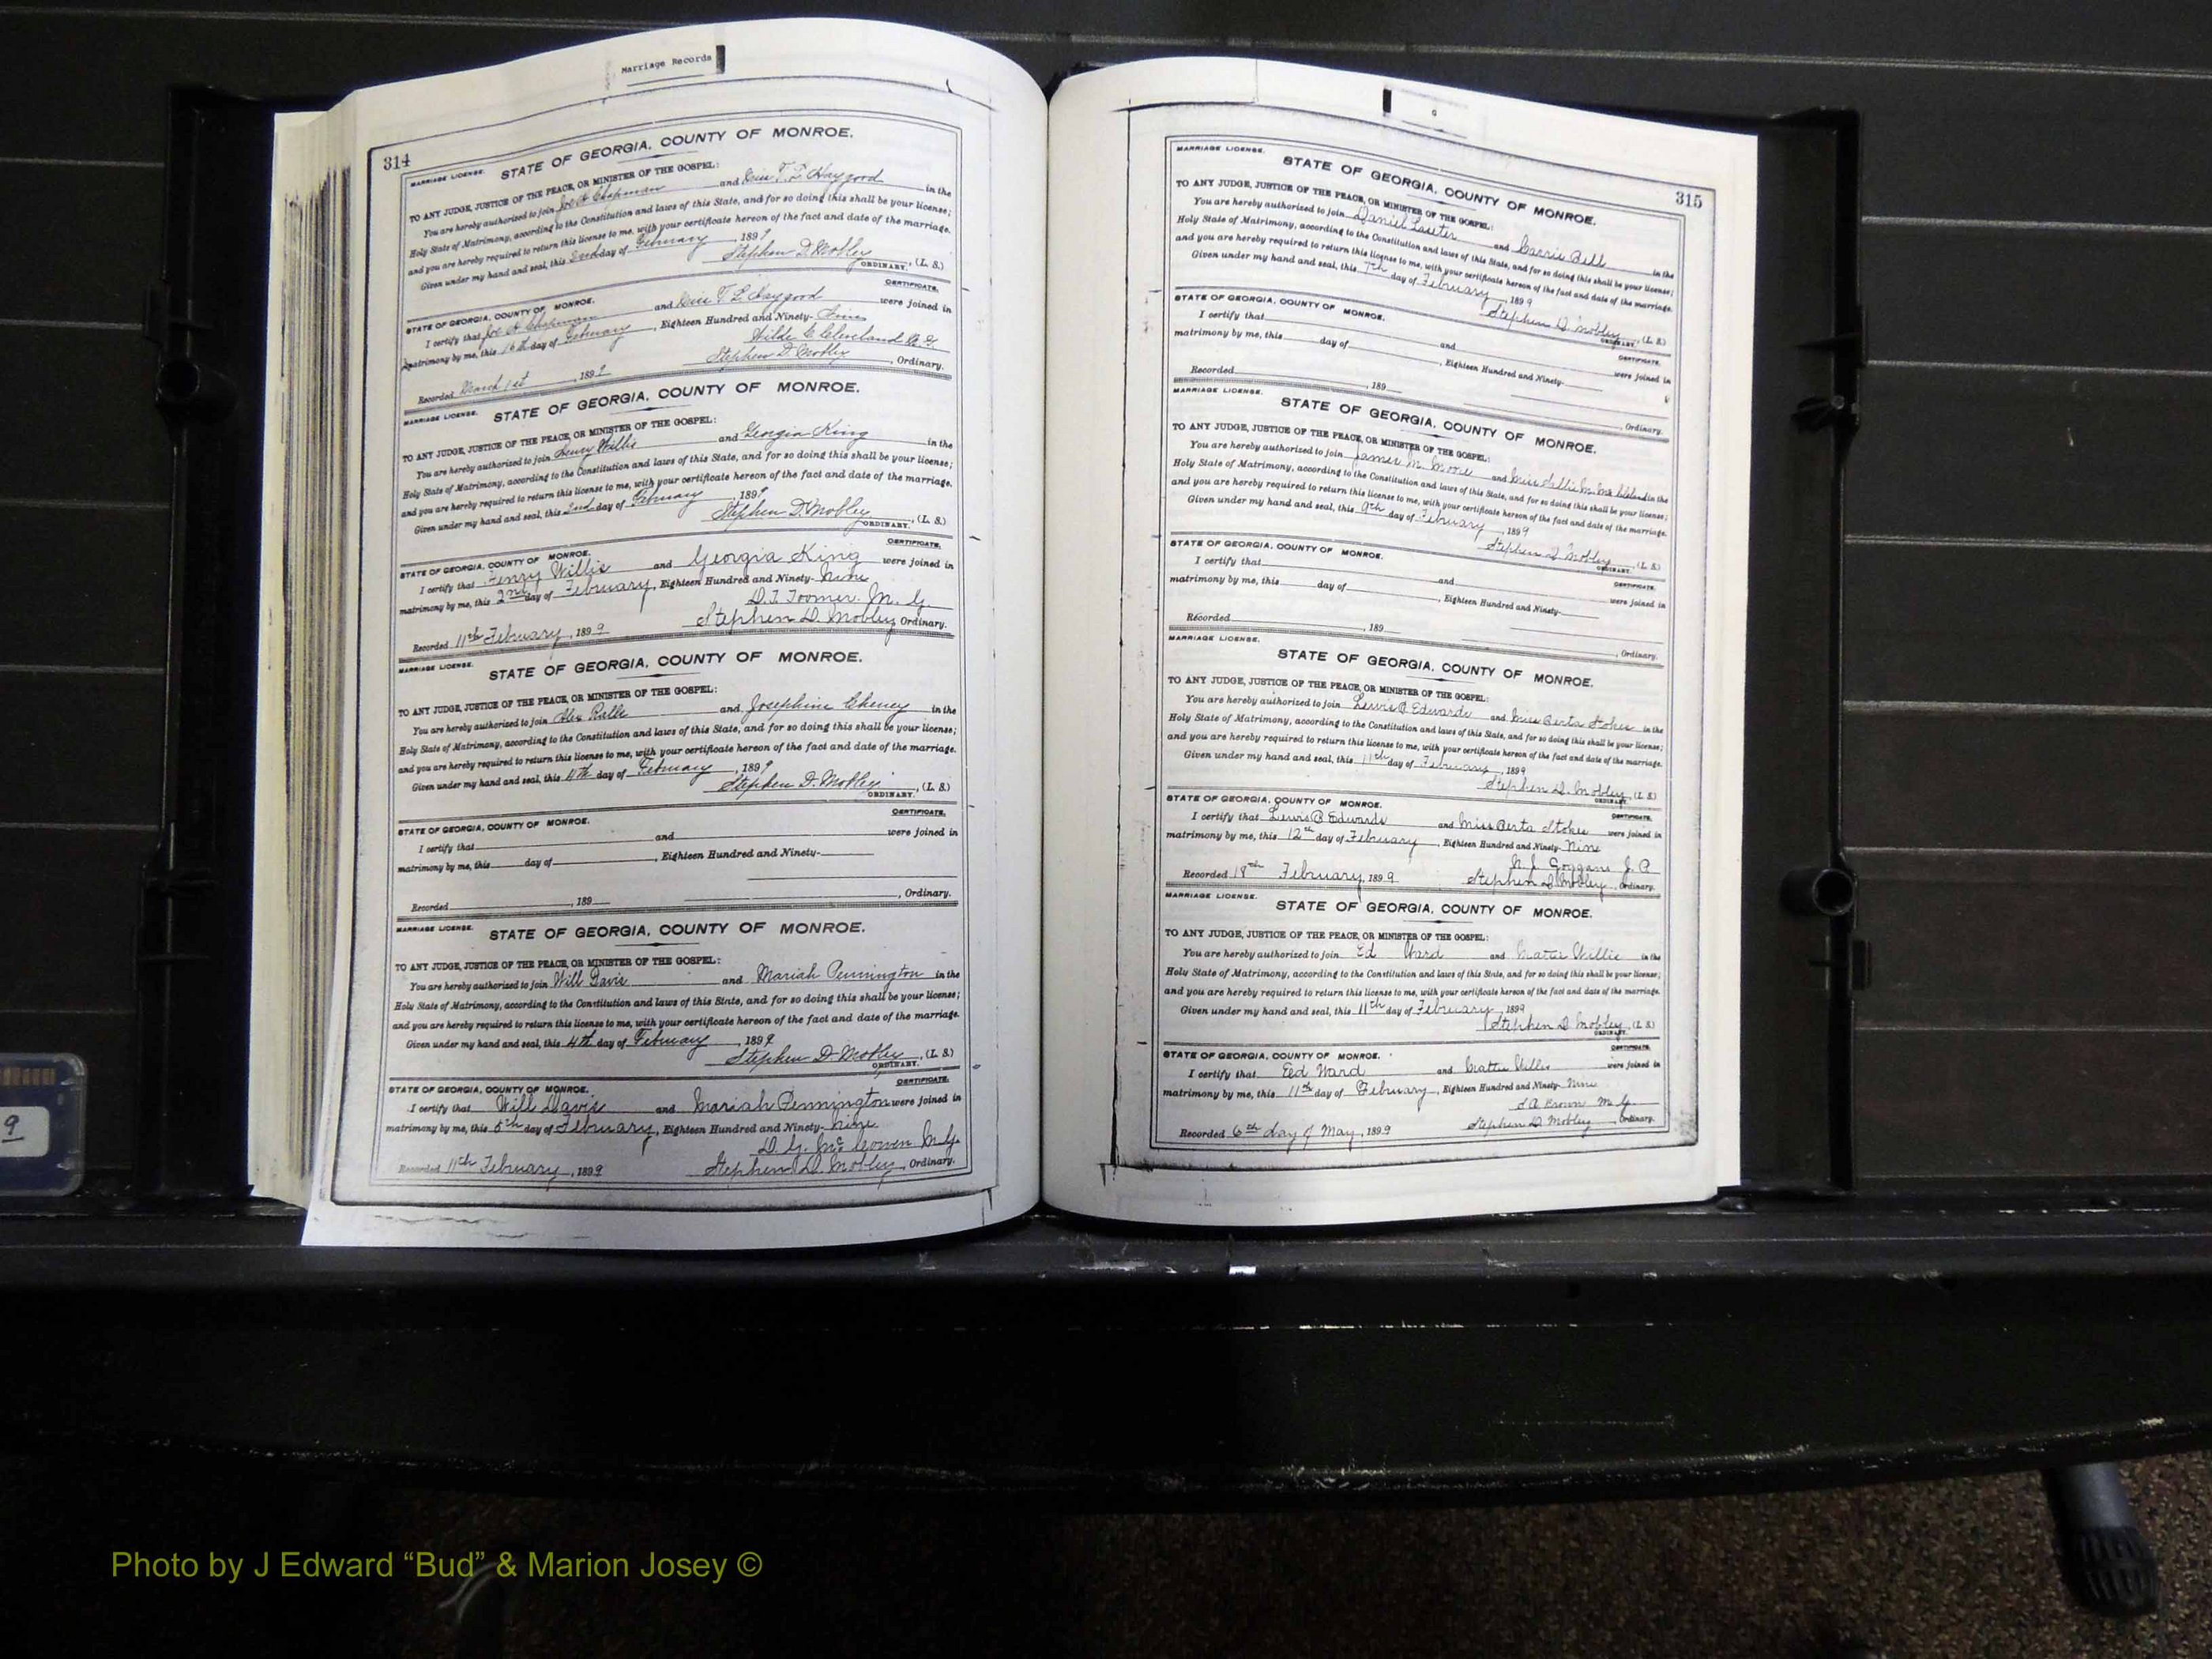 Marriage Records
314
MARRIAGE LICENSE. STATE OF GEORGIA, COUNTY OF MONROE.
TO ANY JUDGE, JUSTICE OF THE PEACE, OR MINISTER OF THE GOSPEL:
You are hereby authorized to join Joe A Chapman and Miss T. L. Haygood in the
Holy State of Matrimony, according to the Constitution and laws of this State, and for so doing this shall be your license;
and you are hereby required to return this license to me, with your certificate hereon of the fact and date of the marriage.
Given under my hand and seal, this 2nd day of February, 1899
Stephen D. Mobley, (L. S.)
ORDINARY.
CERTIFICATE.
STATE OF GEORGIA, COUNTY OF MONROE.
I certify that Joe A Chapman and Miss T L Haygood were joined in
matrimony by me, this 16th day of February, Eighteen Hundred and Ninety-
Cleveland
Stephen D. Mobley, Ordinary.
Recorded March 1st, 1899
MARRIAGE LICENSE. STATE OF GEORGIA, COUNTY OF MONROE.
TO ANY JUDGE, JUSTICE OF THE PEACE, OR MINISTER OF THE GOSPEL:
You are hereby authorized to join Henry Willis and Georgia King in the
Holy State of Matrimony, according to the Constitution and laws of this State, and for so doing this shall be your license;
and you are hereby required to return this license to me, with your certificate hereon of the fact and date of the marriage.
Given under my hand and seal, this 2nd day of February, 1899
Stephen D. Mobley, (L. S.)
ORDINARY.
CERTIFICATE.
STATE OF GEORGIA, COUNTY OF MONROE.
I certify that Henry Willis and Georgia King were joined in
matrimony by me, this 2nd day of February, Eighteen Hundred and Ninety-Nine
D. T. Toomer M. G.
Recorded 11th February, 1899 Stephen D. Mobley Ordinary.
MARRIAGE LICENSE. STATE OF GEORGIA, COUNTY OF MONROE.
TO ANY JUDGE, JUSTICE OF THE PEACE, OR MINISTER OF THE GOSPEL:
You are hereby authorized to join Alex and Josephine Cheney in the
Holy State of Matrimony, according to the Constitution and laws of this State, and for so doing this shall be your license;
and you are hereby required to return this license to me, with your certificate hereon of the fact and date of the marriage.
Given under my hand and seal, this 4th day of February, 1899
Stephen D. Mobley, (L. S.)
ORDINARY.
CERTIFICATE.
STATE OF GEORGIA, COUNTY OF MONROE.
I certify that and were joined in
matrimony by me, this day of , Eighteen Hundred and Ninety-
Recorded , 189 , Ordinary.
MARRIAGE LICENSE. STATE OF GEORGIA, COUNTY OF MONROE.
TO ANY JUDGE, JUSTICE OF THE PEACE, OR MINISTER OF THE GOSPEL:
You are hereby authorized to join Will Davis and Mariah Pennington in the
Holy State of Matrimony, according to the Constitution and laws of this State, and for so doing this shall be your license;
and you are hereby required to return this license to me, with your certificate hereon of the fact and date of the marriage.
Given under my hand and seal, this 4th day of February, 1899
Stephen D Mobley, (L. S.)
ORDINARY.
CERTIFICATE.
STATE OF GEORGIA, COUNTY OF MONROE.
I certify that Will Davis and Mariah Pennington were joined in
matrimony by me, this 5th day of February, Eighteen Hundred and Ninety-Nine
D. G. McCowen M.G.
Recorded 11th February, 1899 Stephen D. Mobley, Ordinary.
315
MARRIAGE LICENSE. STATE OF GEORGIA, COUNTY OF MONROE.
TO ANY JUDGE, JUSTICE OF THE PEACE, OR MINISTER OF THE GOSPEL:
You are hereby authorized to join Daniel Laseter and Carrie Bell in the
Holy State of Matrimony, according to the Constitution and laws of this State, and for so doing this shall be your license;
and you are hereby required to return this license to me, with your certificate hereon of the fact and date of the marriage.
Given under my hand and seal, this 7th day of February, 1899
Stephen D. Mobley, (L. S.)
ORDINARY.
CERTIFICATE.
STATE OF GEORGIA, COUNTY OF MONROE.
I certify that and were joined in
matrimony by me, this day of , Eighteen Hundred and Ninety-
Recorded , 189 , Ordinary.
MARRIAGE LICENSE. STATE OF GEORGIA, COUNTY OF MONROE.
TO ANY JUDGE, JUSTICE OF THE PEACE, OR MINISTER OF THE GOSPEL:
You are hereby authorized to join James M. Moore and Miss in the
Holy State of Matrimony, according to the Constitution and laws of this State, and for so doing this shall be your license;
and you are hereby required to return this license to me, with your certificate hereon of the fact and date of the marriage.
Given under my hand and seal, this 9th day of February, 1899
Stephen D Mobley, (L. S.)
ORDINARY.
CERTIFICATE.
STATE OF GEORGIA, COUNTY OF MONROE.
I certify that and were joined in
matrimony by me, this day of , Eighteen Hundred and Ninety-
Recorded , 189 , Ordinary.
MARRIAGE LICENSE.
STATE OF GEORGIA, COUNTY OF MONROE.
TO ANY JUDGE, JUSTICE OF THE PEACE, OR MINISTER OF THE GOSPEL:
You are hereby authorized to join Lewis B Edwards and Miss Berta Stokes in the
Holy State of Matrimony, according to the Constitution and laws of this State, and for so doing this shall be your license;
and you are hereby required to return this license to me, with your certificate hereon of the fact and date of the marriage.
Given under my hand and seal, this 11th day of February, 1899
Stephen D. Mobley, (L. S.)
ORDINARY.
CERTIFICATE.
STATE OF GEORGIA, COUNTY OF MONROE.
I certify that Lewis B Edwards and Miss Berta Stokes were joined in
matrimony by me, this 12th day of February, Eighteen Hundred and Ninety-Nine
Goggans J. P.
Recorded 18th February, 1899 Stephen D Mobley, Ordinary.
MARRIAGE LICENSE. STATE OF GEORGIA, COUNTY OF MONROE.
TO ANY JUDGE, JUSTICE OF THE PEACE, OR MINISTER OF THE GOSPEL:
You are hereby authorized to join Ed Ward and Mattie Willis in the
Holy State of Matrimony, according to the Constitution and laws of this State, and for so doing this shall be your license;
and you are hereby required to return this license to me, with your certificate hereon of the fact and date of the marriage.
Given under my hand and seal, this 11th day of February, 1899
Stephen D Mobley, (L. S.)
ORDINARY.
CERTIFICATE.
STATE OF GEORGIA, COUNTY OF MONROE.
I certify that Eed Ward and Mattie Willis were joined in
matrimony by me, this 11th day of February, Eighteen Hundred and Ninety-Nine
Brown M. G.
Recorded 6th day of May, 1899 Stephen D Mobley, Ordinary.
9
Photo by J Edward “Bud” & Marion Josey ©